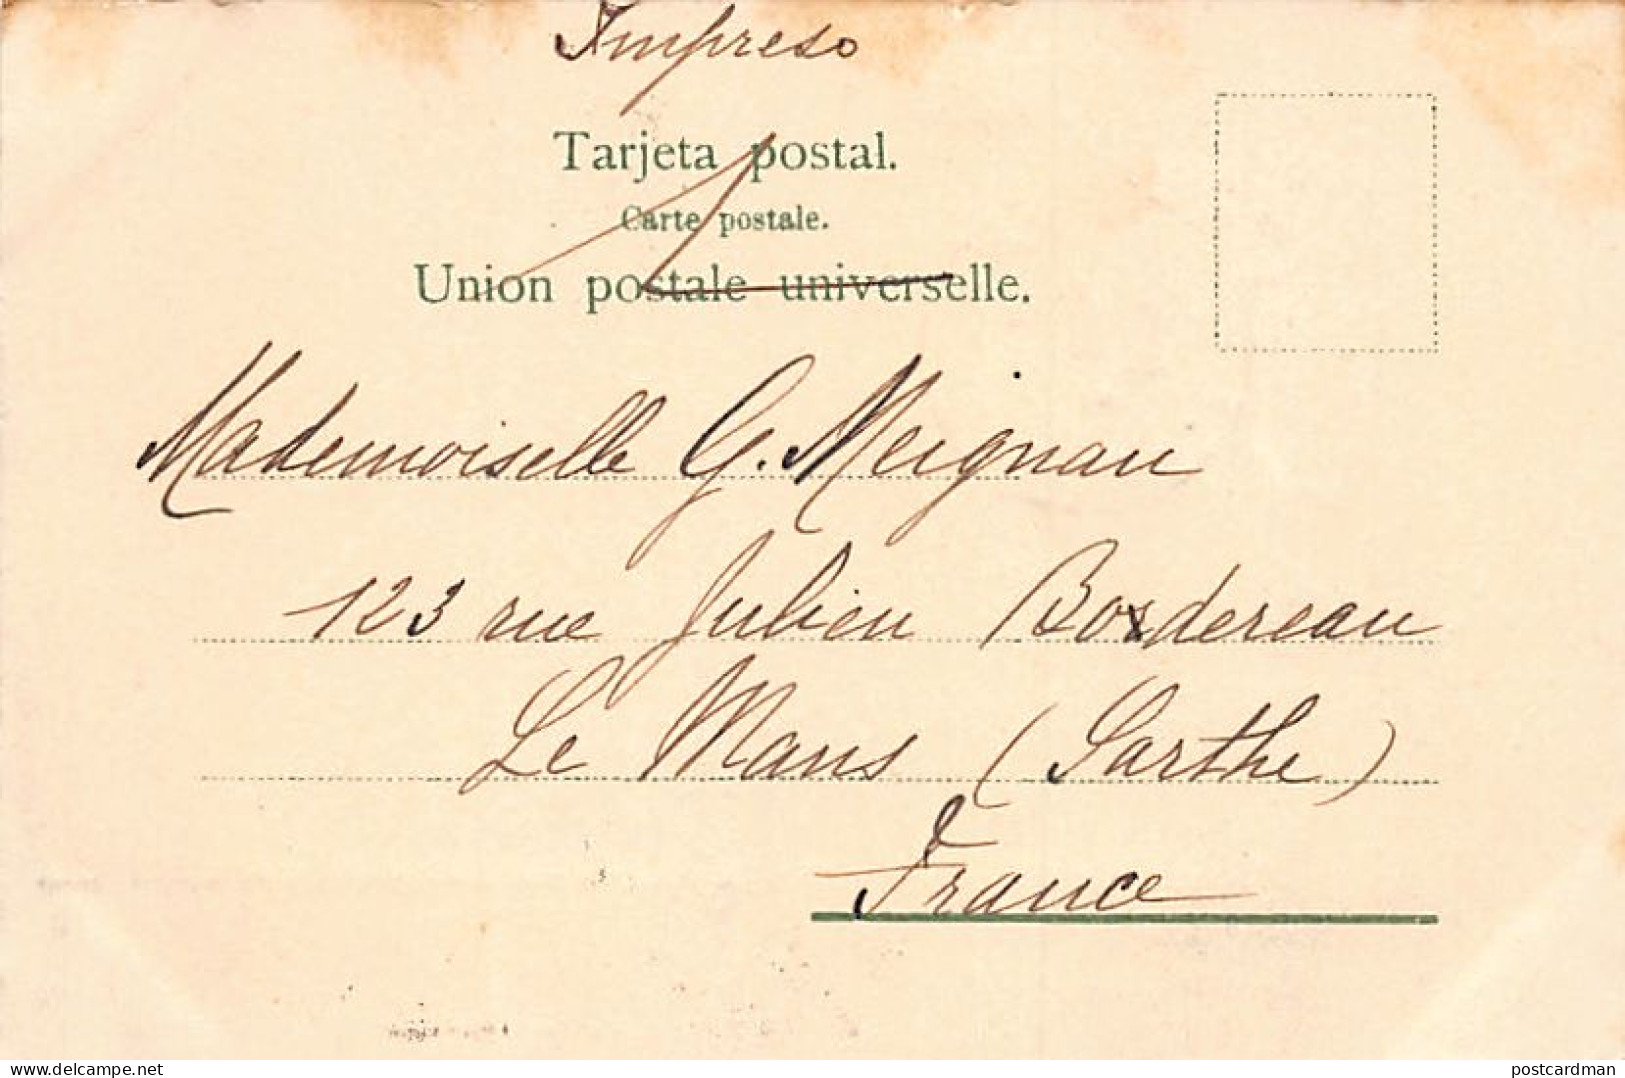 Impreso
Tarjeta postal.
Carte postale.
Union postale universelle.
Mademoiselle G. Meignan
123 rue Julien Bordereau
Le Mans (Sarthe)
France
delcampe.net
postcardman